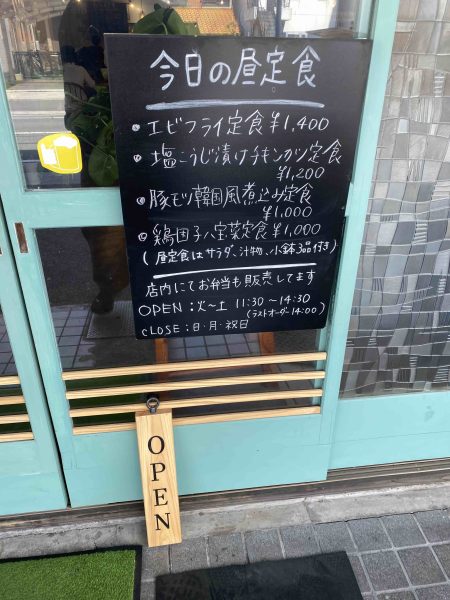 今日の昼定食
• エビフライ定食 ¥1,400
• 塩こうじ漬けチキンカツ定食
¥1,200
• 豚モツ韓国風煮込み定食
¥1,000
• 鶏団子八宝菜定食 ¥1,000
(昼定食はサラダ、汁物、小鉢3品付き)
店内にてお弁当も販売してます
OPEN:火〜土 11:30〜14:30
(ラストオーダー14:00)
CLOSE:日・月・祝日
OPEN